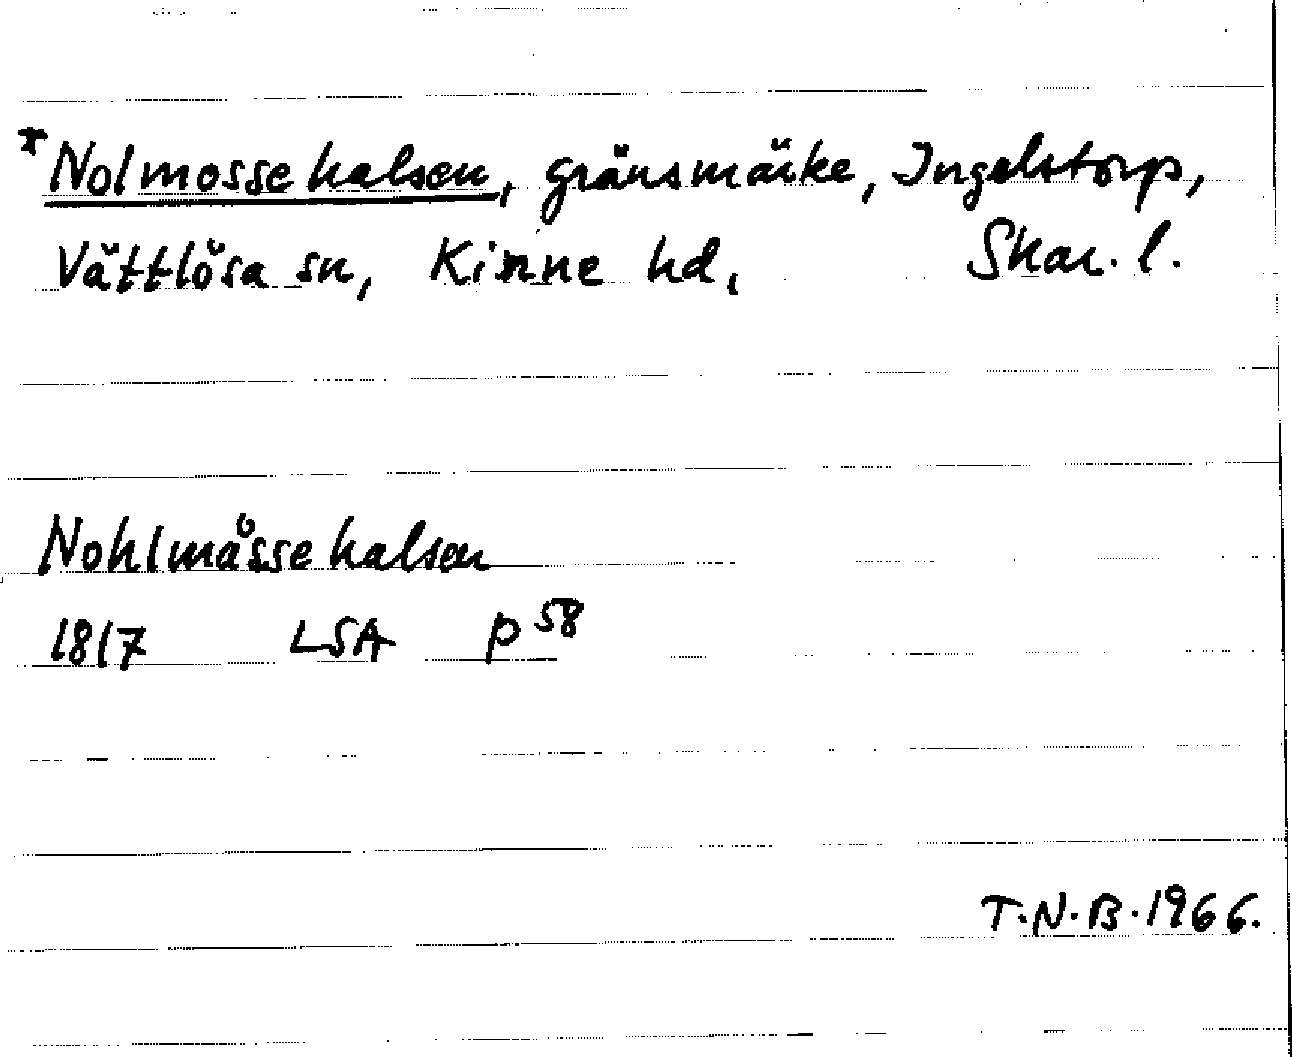 *Nolmossehalsen, gränsmärke, Ingelstorp,
Vättlösa sn, Kinne hd, Skar. l.
Nohlmåssehalsen
1817 LSA P 58
T.N.B. 1966.